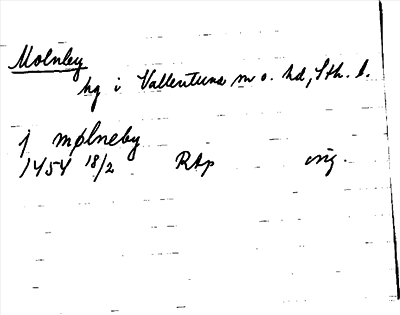 Molnby
hg i Vallentuna sn o. hd, Sth. l.
j mølneby
1454 18/2 RAp orig.